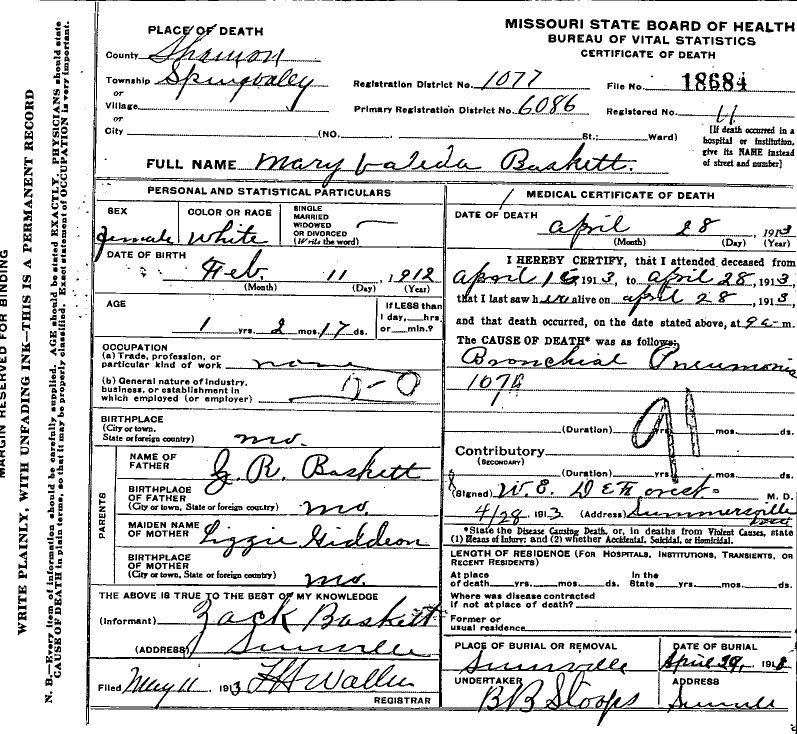 MISSOURI STATE BOARD OF HEALTH
BUREAU OF VITAL STATISTICS
CERTIFICATE OF DEATH
PLACE OF DEATH
County Shannon
Township Springvaley
or
Village
or
City (NO. St.; Ward)
Registration District No. 1077 File No. 18684
Primary Registration District No. 6086 Registered No. 11
[If death occurred in a hospital or institution, give its NAME instead of street and number]
FULL NAME Mary Valeda Baskett.
PERSONAL AND STATISTICAL PARTICULARS
SEX female
COLOR OR RACE White
SINGLE MARRIED WIDOWED OR DIVORCED (Write the word)
DATE OF BIRTH
Feb. 11, 1912
(Month) (Day) (Year)
AGE
1 yrs. 2 mos. 17 ds.
If LESS than 1 day, hrs. or min.?
OCCUPATION
(a) Trade, profession, or particular kind of work none
(b) General nature of industry, business, or establishment in which employed (or employer)
BIRTHPLACE
(City or town, State or foreign country) mo.
PARENTS
NAME OF FATHER G. R. Baskett
BIRTHPLACE OF FATHER (City or town, State or foreign country) mo.
MAIDEN NAME OF MOTHER Lizzie Giddeon
BIRTHPLACE OF MOTHER (City or town, State or foreign country) mo.
THE ABOVE IS TRUE TO THE BEST OF MY KNOWLEDGE
(Informant) Zack Baskett
(ADDRESS)
Filed May 11, 1913 REGISTRAR
MEDICAL CERTIFICATE OF DEATH
DATE OF DEATH
april 28, 1913
(Month) (Day) (Year)
I HEREBY CERTIFY, that I attended deceased from
april 16 1913, to april 28, 1913,
that I last saw her alive on april 28, 1913,
and that death occurred, on the date stated above, at 9 a-m.
The CAUSE OF DEATH* was as follows:
Bronchial Pneumonia
91
(Duration) yrs. mos. ds.
Contributory
(SECONDARY)
(Duration) yrs. mos. ds.
(Signed) W. E. DeForest M. D.
4/28, 1913 (Address) Summersville
*State the Disease Causing Death, or, in deaths from Violent Causes, state
(1) Means of Injury; and (2) whether Accidental, Suicidal, or Homicidal.
LENGTH OF RESIDENCE (FOR HOSPITALS, INSTITUTIONS, TRANSIENTS, OR RECENT RESIDENTS)
At place of death yrs. mos. ds. In the State yrs. mos. ds.
Where was disease contracted if not at place of death?
Former or usual residence
PLACE OF BURIAL OR REMOVAL
DATE OF BURIAL April 29, 191
UNDERTAKER BB Stoops
ADDRESS
MARGIN RESERVED FOR BINDING
WRITE PLAINLY, WITH UNFADING INK—THIS IS A PERMANENT RECORD
N. B.—Every item of information should be carefully supplied. AGE should be stated EXACTLY. PHYSICIANS should state
CAUSE OF DEATH in plain terms, so that it may be properly classified. Exact statement of OCCUPATION is very important.